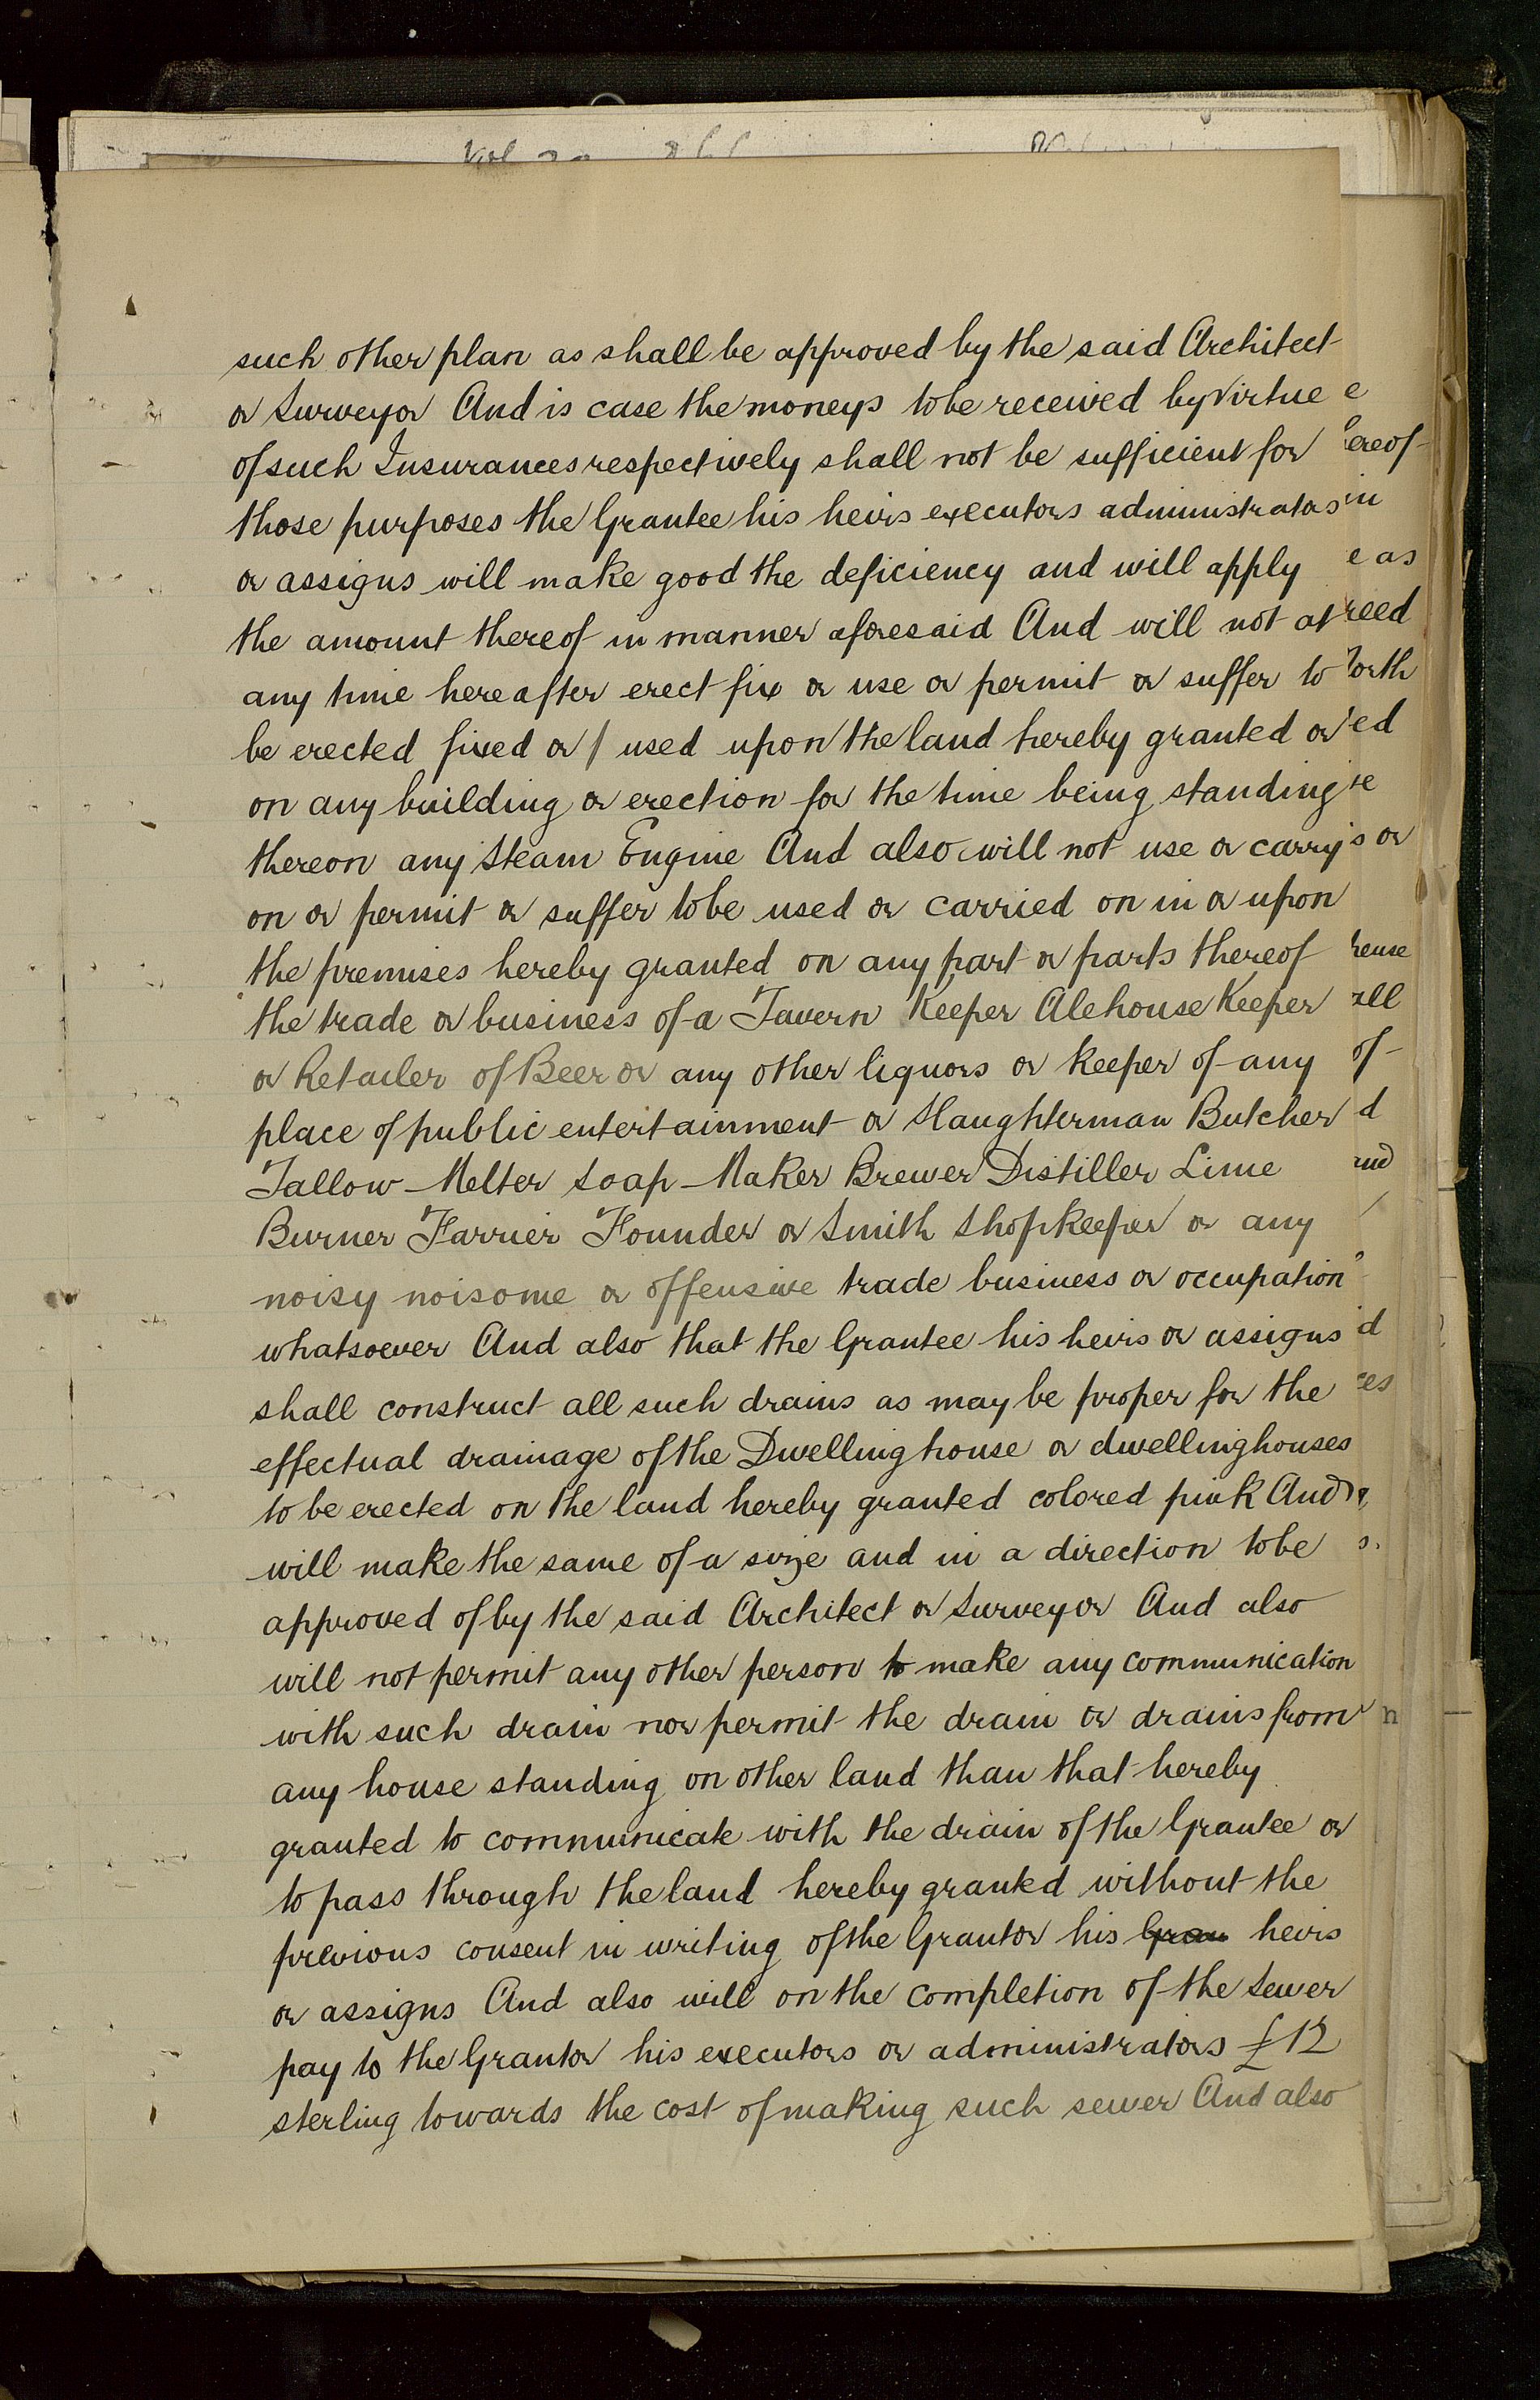 such other plan as shall be approved by the said Architect
or Surveyor And is case the moneys to be received by virtue
of such Insurances respectively shall not be sufficient for
those purposes the Grantee his heirs executors administrators
or assigns will make good the deficiency and will apply
the amount thereof in manner aforesaid And will not at
any time hereafter erect fix or use or permit or suffer to
be erected fixed or / used upon the land hereby granted or
on any building or erection for the time being standing
thereon any Steam Engine And also will not use or carry
on or permit or suffer to be used or carried on in or upon
the premises hereby granted on any part or parts thereof
the trade or business of a Tavern Keeper Alehouse Keeper
or Retailer of Beer or any other liquors or Keeper of any
place of public entertainment or Slaughterman Butcher
Tallow-Melter Soap-Maker Brewer Distiller Lime
Burner Farrier Founder or Smith Shopkeeper or any
noisy noisome or offensive trade business or occupation
whatsoever And also that the Grantee his heirs or assigns
shall construct all such drains as may be proper for the
effectual drainage of the Dwellinghouse or dwellinghouses
to be erected on the land hereby granted colored pink And
will make the same of a size and in a direction to be
approved of by the said Architect or Surveyor And also
will not permit any other person to make any communication
with such drain nor permit the drain or drains from
any house standing on other land than that hereby
granted to communicate with the drain of the Grantee or
to pass through the land hereby granted without the
previous consent in writing of the Grantor his Gran heirs
or assigns And also will on the completion of the Sewer
pay to the Grantor his executors or administrators £12
sterling towards the cost of making such sewer And also